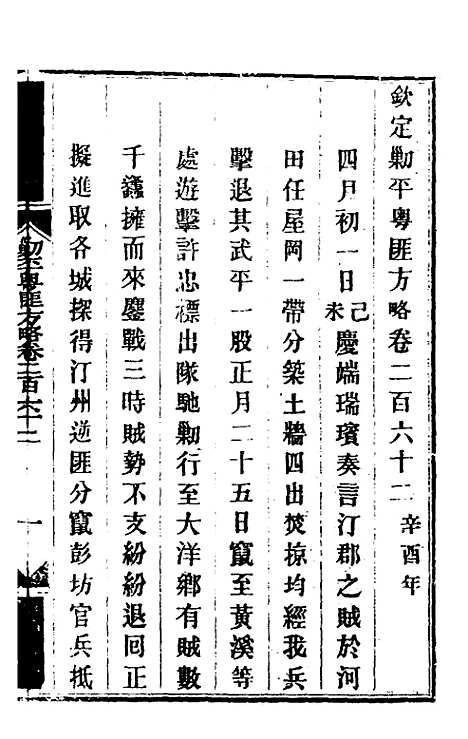 欽定剿平粵匪方略卷二百六十二 辛酉年
四月初一日己未慶端瑞璸奏言汀郡之賊於河
田任屋岡一帶分築土牆四出焚掠均經我兵
擊退其武平一股正月二十五日竄至黃溪等
處遊擊許忠標出隊馳剿行至大洋鄉有賊數
千蠭擁而來鏖戰三時賊勢不支紛紛退回正
擬進取各城探得汀州逆匪分竄彭坊官兵抵
剿平粵匪方略卷二百六十二 一